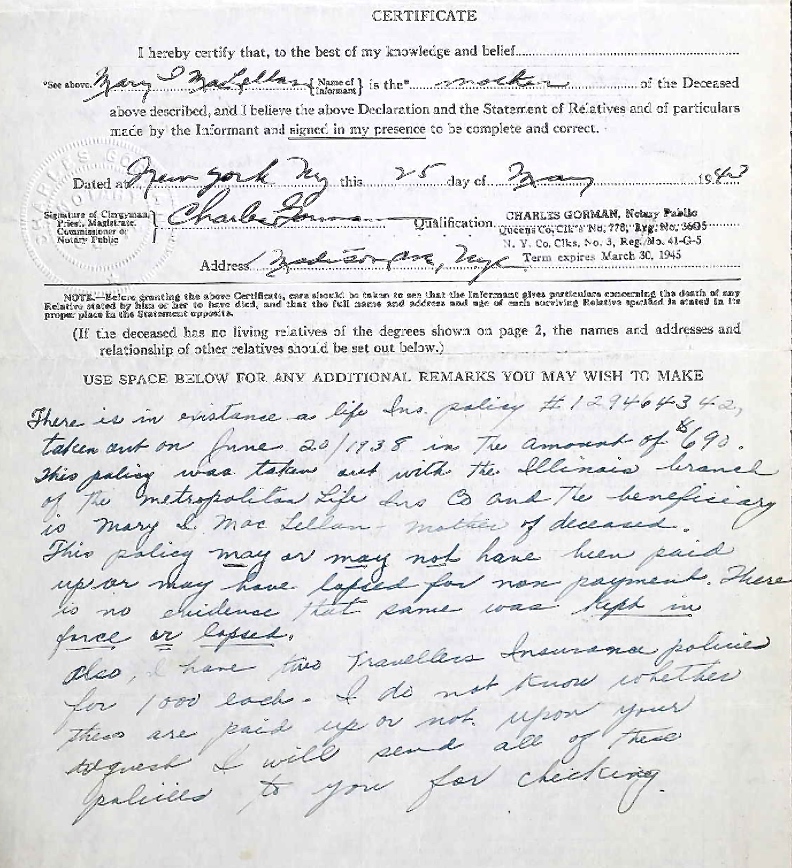 CERTIFICATE
I hereby certify that, to the best of my knowledge and belief
*See above. Mary I MacLellan {Name of Informant} is the* mother of the Deceased
above described, and I believe the above Declaration and the Statement of Relatives and of particulars
made by the Informant and signed in my presence to be complete and correct.
Dated at New York Ny this 25 day of May 1943
Signature of Clergyman, Priest, Magistrate, Commissioner or Notary Public} Charles Gorman Qualification
CHARLES GORMAN, Notary Public
Queens Co, Clk's No. 778, Reg. No. 3605
N. Y. Co. Clks, No. 3, Reg. No. 41-G-5
Address Madison Ave, Nyc Term expires March 30, 1945
NOTE.—Before granting the above Certificate, care should be taken to see that the Informant gives particulars concerning the death of any
Relative stated by him or her to have died, and that the full name and address and age of each surviving Relative specified is stated in its
proper place in the Statement opposite.
(If the deceased has no living relatives of the degrees shown on page 2, the names and addresses and
relationship of other relatives should be set out below.)
USE SPACE BELOW FOR ANY ADDITIONAL REMARKS YOU MAY WISH TO MAKE
There is in existance a life Ins. policy # 129464342,
taken out on June 20/1938 in the amount of $690.
This policy was taken out with the Illinois branch
of the Metropolitan Life Ins Co and the beneficiary
is Mary I. Mac Lellan - mother of deceased.
This policy may or may not have been paid
up or may have lapsed for non payment. There
is no evidence that same was kept in
force or lapsed.
Also, I have two Travellers Insurance policies
for 1000 each. I do not know whether
these are paid up or not. upon your
request I will send all of these
policies to you for checking.